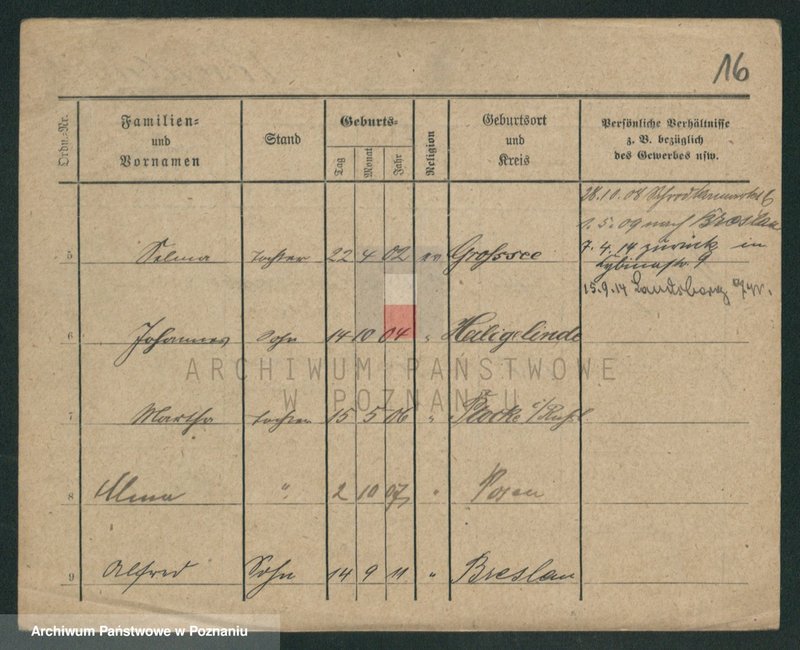 16
Ordn.-Nr.
Familien-
und
Vornamen
Stand
Geburts-
Tag
Monat
Jahr
Religion
Geburtsort
und
Kreis
Persönliche Verhältnisse
z. B. bezüglich
des Gewerbes usw.
28.10.08
1.5.09 nach Breslau
7.4.14 zurück in
15.9.14 Landsberg a/W.
5 Selma Tochter 22 4 02 ev Grossee
6 Johannes Sohn 14 10 04 " Heiligelinde
7 Martha Tochter 15 5 06 "
8 " 2 10 07 " Posen
9 Alfred Sohn 14 9 11 " Breslau
ARCHIWUM PAŃSTWOWE
W POZNANIU
Archiwum Państwowe w Poznaniu